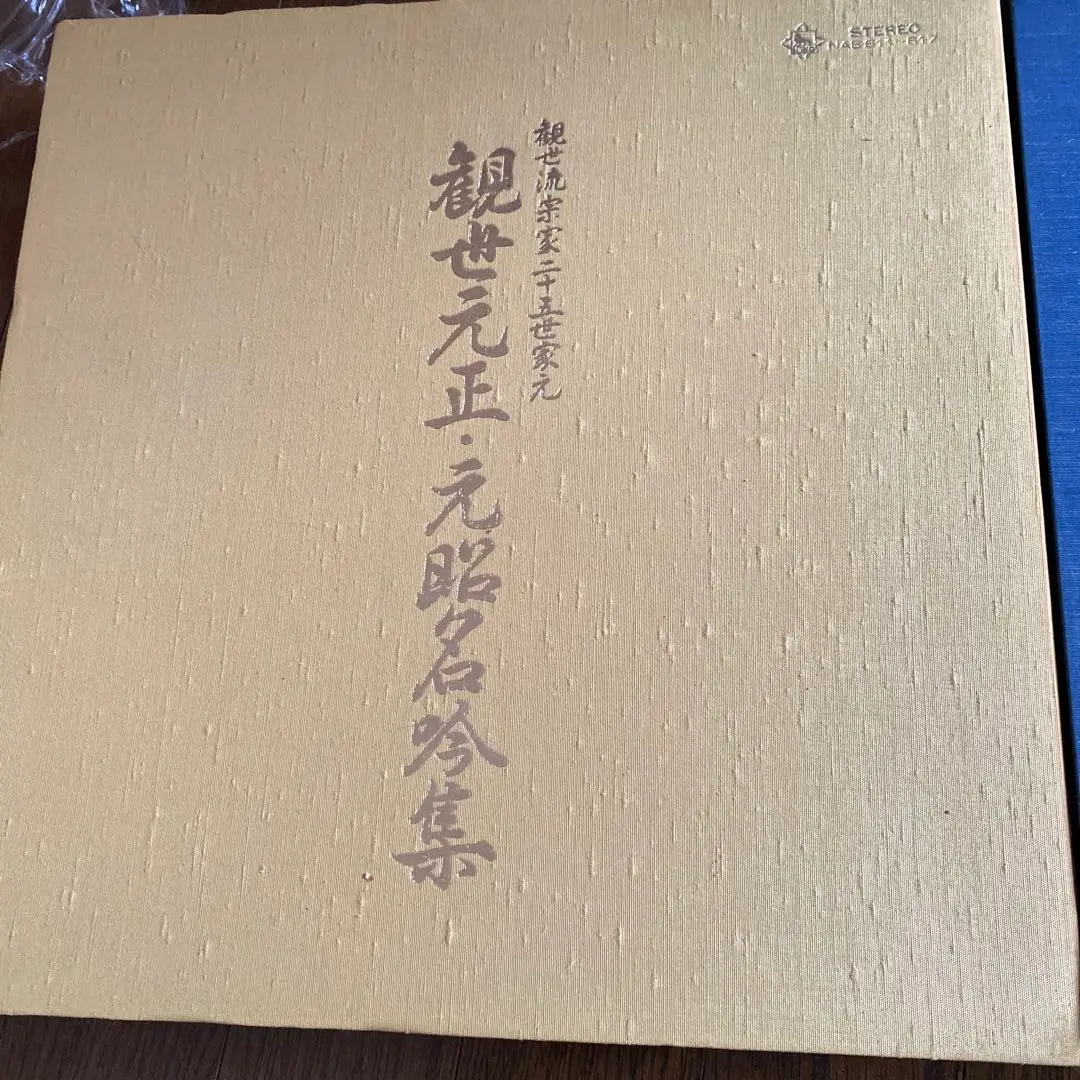 STEREO
観世流宗家二十五世家元
観世元正・元昭名吟集